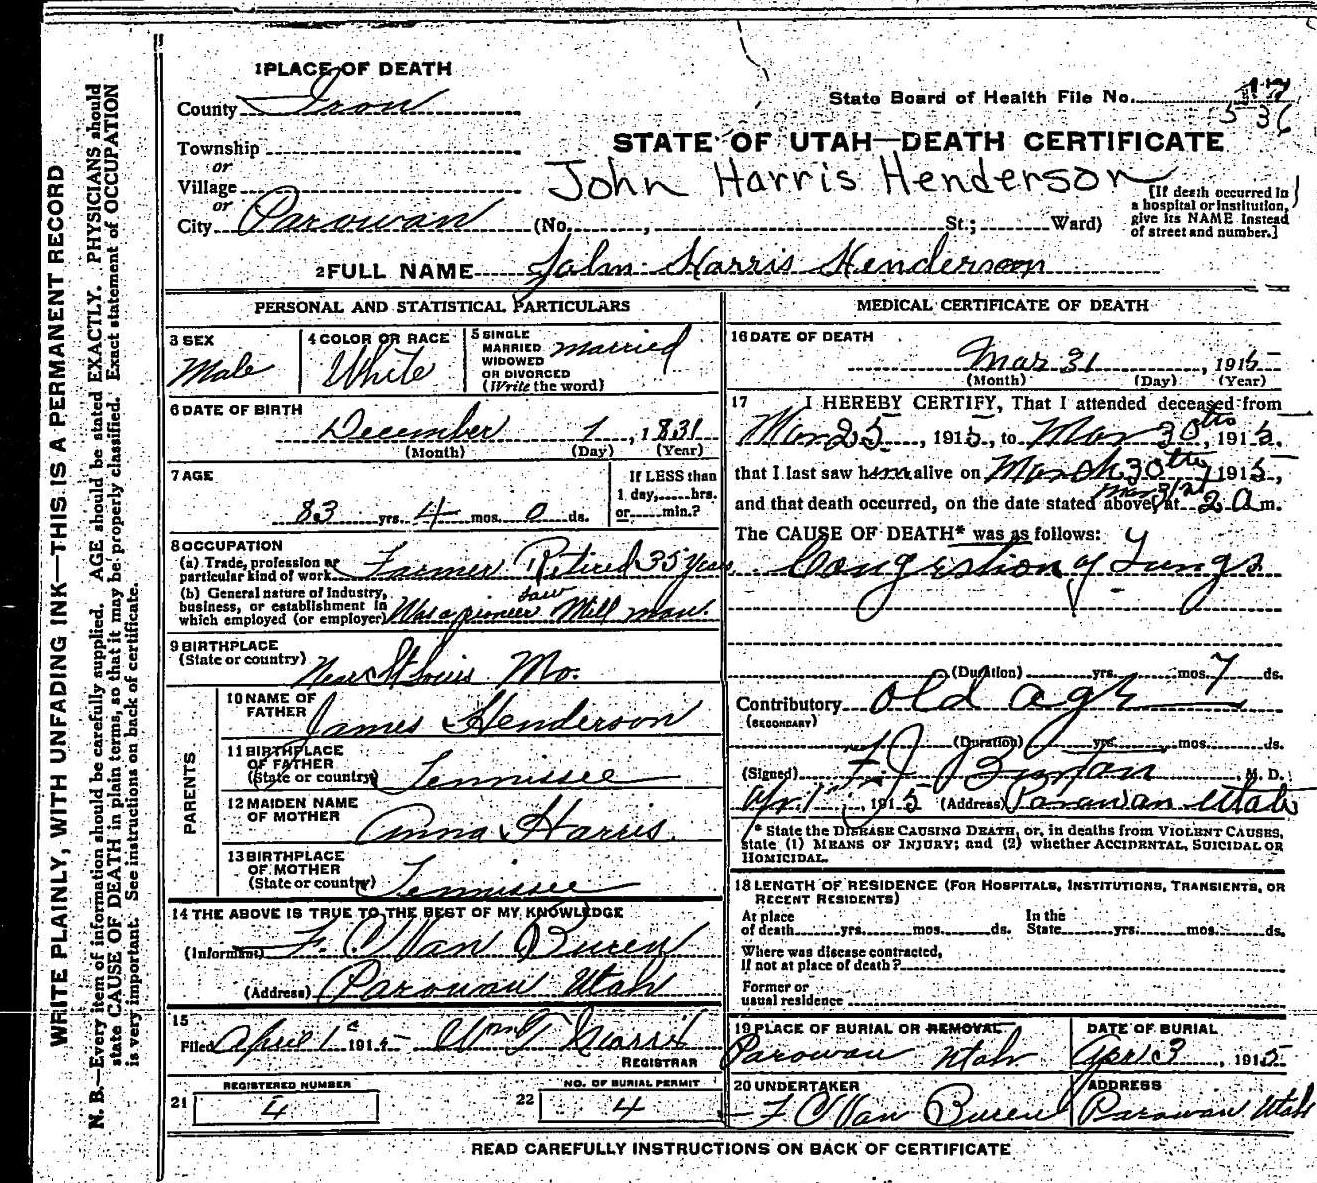 1 PLACE OF DEATH
County Iron
Township
or
Village
or
City Parowan
State Board of Health File No. 17
536
STATE OF UTAH—DEATH CERTIFICATE
John Harris Henderson
(No. , St.; Ward)
[If death occurred in
a hospital or institution,
give its NAME instead
of street and number.]
2 FULL NAME John Harris Henderson
PERSONAL AND STATISTICAL PARTICULARS
3 SEX
Male
4 COLOR OR RACE
White
5 SINGLE
MARRIED
WIDOWED
OR DIVORCED
(Write the word)
married
6 DATE OF BIRTH
December 1, 1831
(Month) (Day) (Year)
7 AGE
83 yrs. 4 mos. 0 ds.
If LESS than
1 day, hrs.
or min.?
8 OCCUPATION
(a) Trade, profession or
particular kind of work Farmer Retired 35 years
(b) General nature of Industry,
business, or establishment in
which employed (or employer) Was a pioneer Saw Mill man.
9 BIRTHPLACE
(State or country) Near St Louis Mo.
PARENTS
10 NAME OF
FATHER James Henderson
11 BIRTHPLACE
OF FATHER
(State or country) Tennissee
12 MAIDEN NAME
OF MOTHER Anna Harris.
13 BIRTHPLACE
OF MOTHER
(State or country) Tennissee
14 THE ABOVE IS TRUE TO THE BEST OF MY KNOWLEDGE
(Informant) F. C. Van Buren
(Address) Parowan Utah
15
Filed April 1st 1915 Wm T
REGISTRAR
21 REGISTERED NUMBER
4
22 NO. OF BURIAL PERMIT
4
MEDICAL CERTIFICATE OF DEATH
16 DATE OF DEATH
Mar 31, 1915
(Month) (Day) (Year)
17 I HEREBY CERTIFY, That I attended deceased from
Mar 25, 1915, to Mar 30th, 1915.
that I last saw him alive on March 30th, 1915,
and that death occurred, on the date stated above, Mar 31st at 2 a m.
The CAUSE OF DEATH* was as follows:
Congestion of Lungs
(Duration) yrs. mos. 7 ds.
Contributory old age
(SECONDARY)
(Duration) yrs. mos. ds.
(Signed) F J Burton M. D.
Apr 1, 1915 (Address) Parowan Utah
* State the DISEASE CAUSING DEATH, or, in deaths from VIOLENT CAUSES,
state (1) MEANS OF INJURY; and (2) whether ACCIDENTAL, SUICIDAL OR
HOMICIDAL.
18 LENGTH OF RESIDENCE (FOR HOSPITALS, INSTITUTIONS, TRANSIENTS, OR
RECENT RESIDENTS)
At place
of death yrs. mos. ds.
In the
State yrs. mos. ds.
Where was disease contracted,
If not at place of death?
Former or
usual residence
19 PLACE OF BURIAL OR REMOVAL
Parowan Utah
DATE OF BURIAL
Apr 3, 1915
20 UNDERTAKER
F C Van Buren
ADDRESS
Parowan Utah
READ CAREFULLY INSTRUCTIONS ON BACK OF CERTIFICATE
WRITE PLAINLY, WITH UNFADING INK—THIS IS A PERMANENT RECORD
N. B.—Every item of information should be carefully supplied. AGE should be stated EXACTLY. PHYSICIANS should
state CAUSE OF DEATH in plain terms, so that it may be properly classified. Exact statement of OCCUPATION
is very important. See instructions on back of certificate.